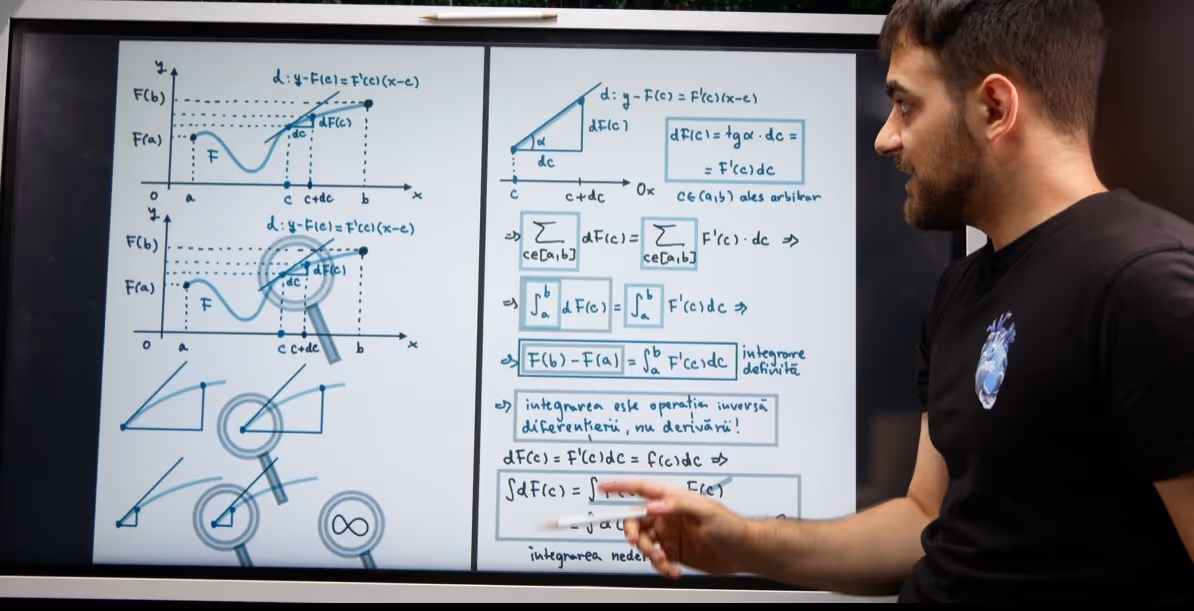 y
d: y-F(c)=F'(c)(x-c)
F(b)
F(a)
dF(c)
dc
F
0 a c c+dc b x
y
d: y-F(c)=F'(c)(x-c)
F(b)
F(a)
dF(c)
dc
F
0 a c c+dc b x
∞
d: y-F(c)=F'(c)(x-c)
dF(c)
α
dc
c c+dc Ox
dF(c)=tgα·dc=
=F'(c)dc
c∈(a,b) ales arbitrar
=> ∑ dF(c)= ∑ F'(c)·dc =>
c∈[a,b] c∈[a,b]
=> ∫ₐᵇ dF(c)=∫ₐᵇ F'(c)dc =>
=> F(b)-F(a)=∫ₐᵇ F'(c)dc integrare
definită
=> integrarea este operația inversă
diferențierii, nu derivării!
dF(c)=F'(c)dc=f(c)dc =>
∫dF(c)=∫ F(c)
=∫
integrarea